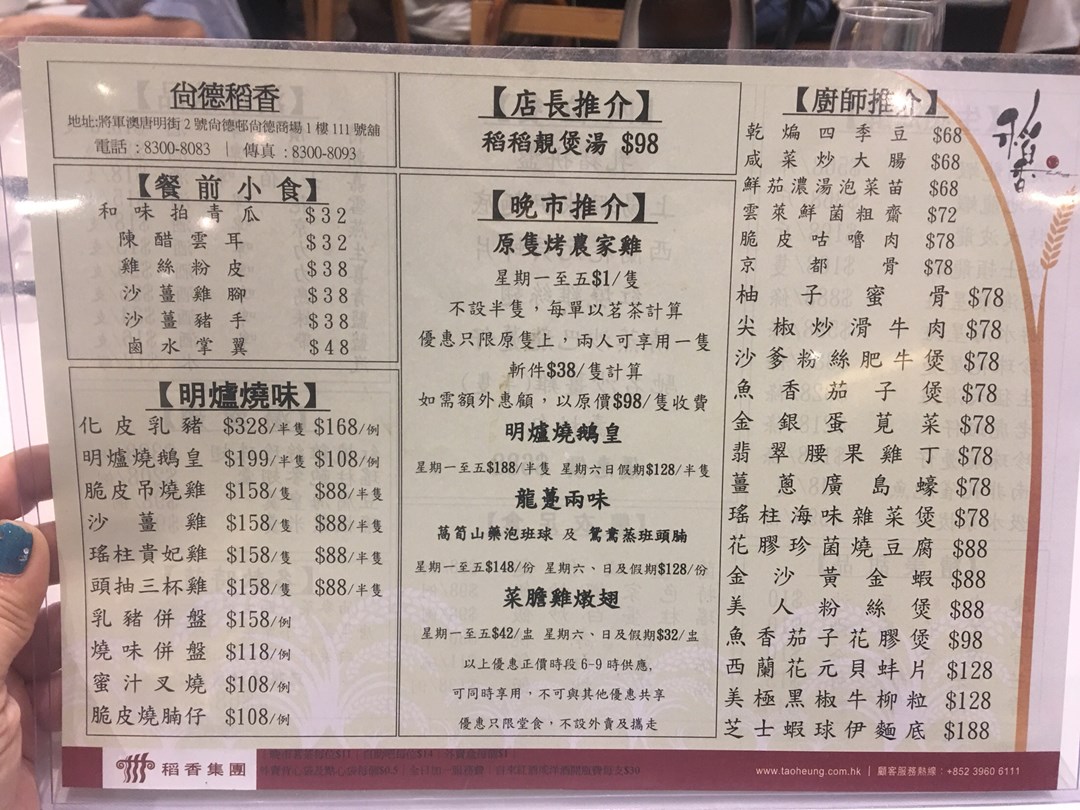 尙德稻香
地址:將軍澳唐明街2號尙德邨尙德商場1樓111號舖
電話:8300-8083 | 傳真:8300-8093
【餐前小食】
和味拍青瓜 $32
陳醋雲耳 $32
雞絲粉皮 $38
沙薑雞腳 $38
沙薑豬手 $38
鹵水掌翼 $48
【明爐燒味】
化皮乳豬 $328/半隻 $168/例
明爐燒鵝皇 $199/半隻 $108/例
脆皮吊燒雞 $158/隻 $88/半隻
沙薑雞 $158/隻 $88/半隻
瑤柱貴妃雞 $158/隻 $88/半隻
頭抽三杯雞 $158/隻 $88/半隻
乳豬併盤 $158/例
燒味併盤 $118/例
蜜汁叉燒 $108/例
脆皮燒腩仔 $108/例
【店長推介】
稻稻靚煲湯 $98
【晚市推介】
原隻烤農家雞
星期一至五$1/隻
不設半隻，每單以茗茶計算
優惠只限原隻上，兩人可享用一隻
斬件$38/隻計算
如需額外惠顧，以原價$98/隻收費
明爐燒鵝皇
星期一至五$188/半隻 星期六日假期$128/半隻
龍躉兩味
萵筍山藥泡班球 及 鴛鴦蒸班頭腩
星期一至五$148/份 星期六、日及假期$128/份
菜膽雞燉翅
星期一至五$42/盅 星期六、日及假期$32/盅
以上優惠正價時段6-9時供應,
可同時享用，不可與其他優惠共享
優惠只限堂食，不設外賣及攜走
【廚師推介】
乾煸四季豆 $68
咸菜炒大腸 $68
鮮茄濃湯泡菜苗 $68
雲萊鮮菌粗齋 $72
脆皮咕嚕肉 $78
京都骨 $78
柚子蜜骨 $78
尖椒炒滑牛肉 $78
沙爹粉絲肥牛煲 $78
魚香茄子煲 $78
金銀蛋莧菜 $78
翡翠腰果雞丁 $78
薑蔥廣島蠔 $78
瑤柱海味雜菜煲 $78
花膠珍菌燒豆腐 $88
金沙黃金蝦 $88
美人粉絲煲 $88
魚香茄子花膠煲 $98
西蘭花元貝蚌片 $128
美極黑椒牛柳粒 $128
芝士蝦球伊麵底 $188
稻香
稻香集團
www.taoheung.com.hk | 顧客服務熱線：+852 3960 6111